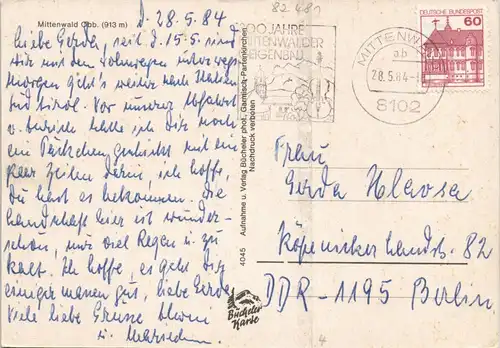 82 481
Mittenwald Obb. (913 m)
d. 28.5.84
liebe Gerda, seit d. 15.5. sind
wir mit dem Wohnwagen unterwegs
Morgen geht's weiter nach Italien
Südtirol. Vor unserer Abfahrt
hatte ich Dir noch
ein Päckchen geschickt mit ein
paar Zeilen darin, ich hoffe,
Du hast es bekommen. Die
Landschaft hier ist wunder-
schön, nur viel Regen u. zu
kalt. Ich hoffe, es geht Dir
einigermassen gut, liebe Gerda
Viele liebe Grüsse
u.
4045 Aufnahme u. Verlag Bücheler phot., Garmisch-Partenkirchen
Nachdruck verboten
Bücheler
Karte
300 JAHRE
MITTENWALDER
GEIGENBAU
MITTENWALD
ab
28.5.84
8102
DEUTSCHE BUNDESPOST
60
Frau
Gerda Hlavsa
Köpenicker Landstr. 82
DDR-1195 Berlin
4